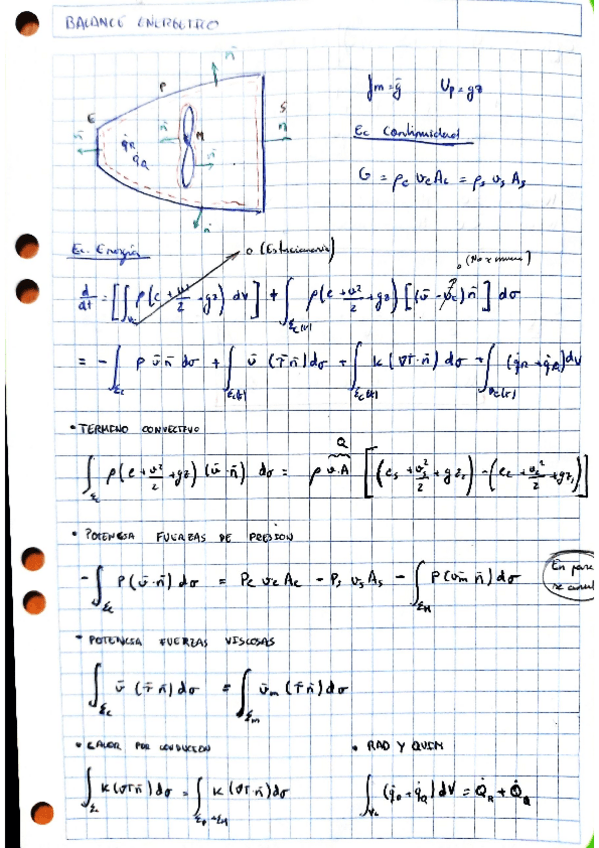 BALANCE ENERGETICO
n̄
P
f̄m = ḡ   Up = gz
E
S
Ec Continuidad
n̄ n̄ M n̄
q̇R
q̇Q
n̄
G = ρe ve Ae = ρs vs As
n̄
Ec. Energía
0 (Estacionario)
d/dt = [∫Vc ρ(e + v²/2 + gz) dV] + ∫Σc(t) ρ(e + v²/2 + gz) [(v̄ - v̄c) n̄] dσ
= - ∫Σc P v̄ n̄ dσ + ∫Σc(t) v̄ (τ̄ n̄) dσ + ∫Σc(t) k (∇T · n̄) dσ + ∫Vc(t) (q̇R + q̇Q) dV
• TERMINO CONVECTIVO
Q
∫Σc ρ(e + v²/2 + gz) (v̄ · n̄) dσ = ρ v·A [(es + vs²/2 + gz) - (ee + v²/2 + gz)]
• POTENCIA FUERZAS DE PRESION
- ∫Σc P(v̄ · n̄) dσ = Pe ve Ae - Ps vs As - ∫ΣM P(v̄m n̄) dσ
En
se
• POTENCIA FUERZAS VISCOSAS
∫Σc v̄ (τ̄ n̄) dσ = ∫Σm v̄m (τ̄ n̄) dσ
• CALOR POR CONDUCCION
• RAD Y QUIM
∫Σc k (∇T n̄) dσ = ∫Σp+ΣM k (∇T · n̄) dσ
∫Vc (q̇R + q̇Q) dV = Q̇R + Q̇Q